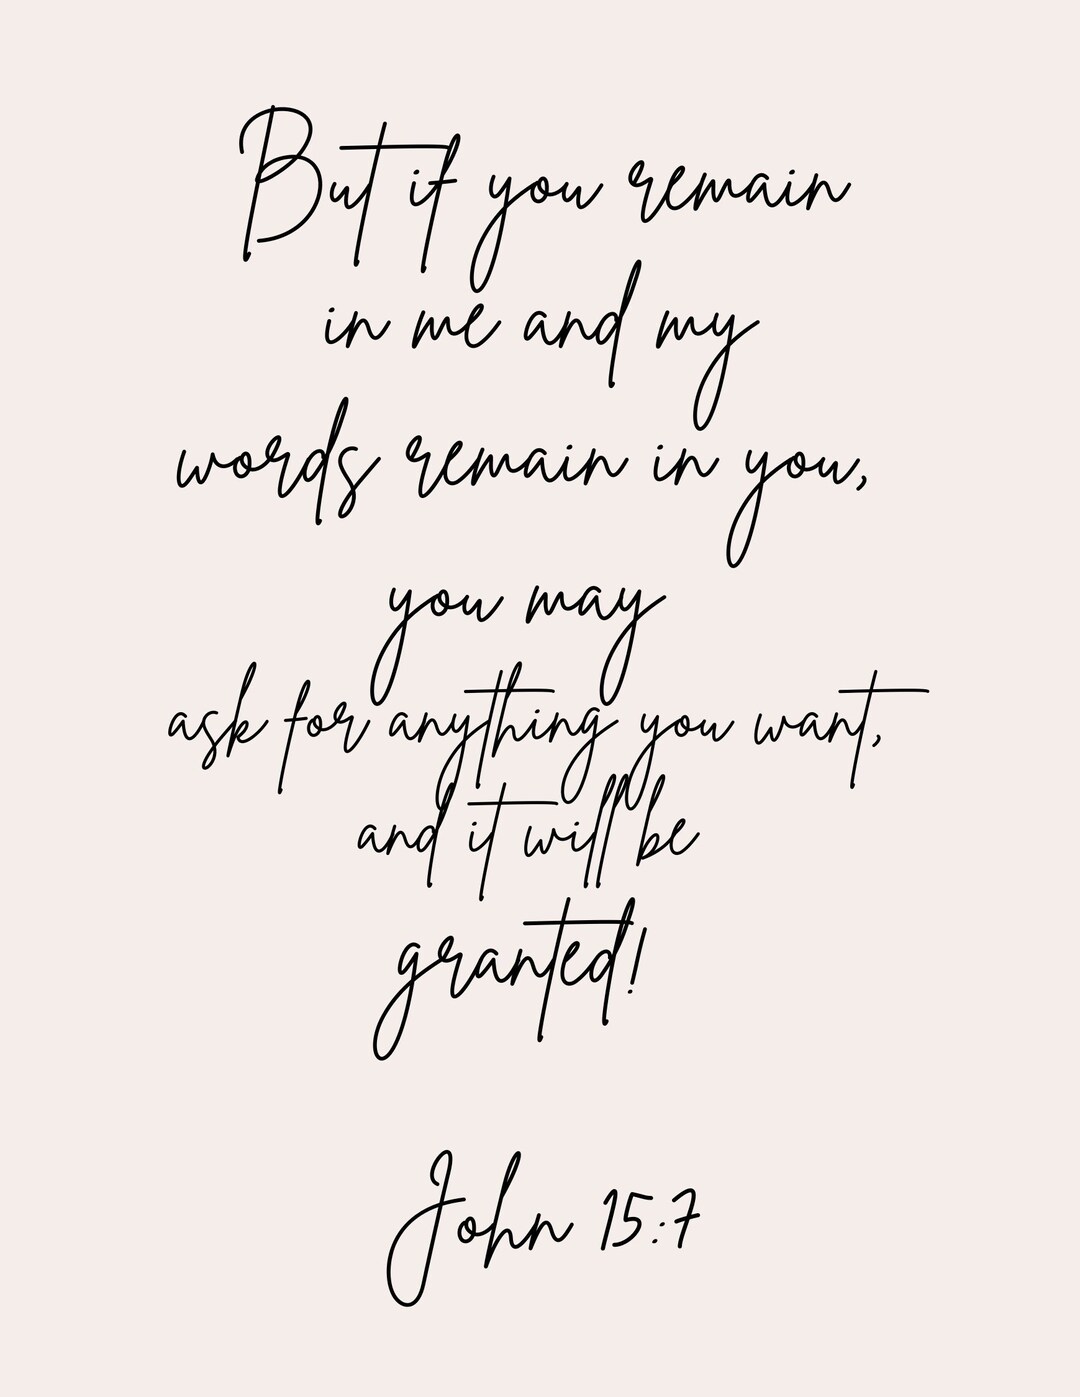 But if you remain
in me and my
words remain in you,
you may
ask for anything you want,
and it will be
granted!
John 15:7